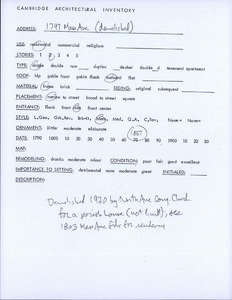 CAMBRIDGE ARCHITECTURAL INVENTORY
ADDRESS: 1797 Mass Ave (demolished)
USE: residential commercial religious
STORIES: 1 2 3 4 5
TYPE: single double row duplex decker double d tenement apartment
ROOF: hip gable front gable flank mansard flat
MATERIAL: frame brick SIDING: original subsequent
PLACEMENT: narrow to street broad to street square
ENTRANCE: flank front side front center
STYLE: Med, Q.A., C.Rev, None+ None-
ORNAMENT: little moderate elaborate
1867
DATE: 1790 1800 10 20 30 40 50 60 70 80 90 1900 10 20 30
MAP:
REMODELING: drastic moderate minor CONDITION: poor fair good excellent
IMPORTANCE TO SETTING: detrimental none moderate great INITIALED:
DESCRIPTION:
Demolished 1920 by North Ave Cong. Church
for a parish house (not built), see
1803 Mass Ave file for rendering